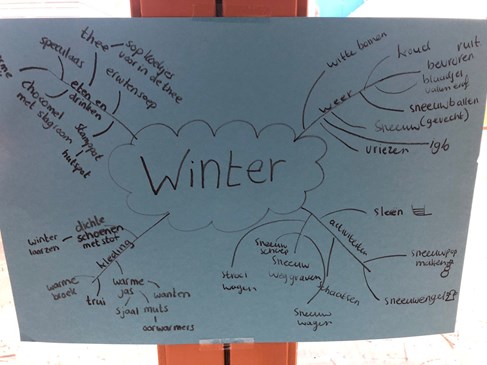 Winter
eten en
drinken
thee
sop koekjes
voor in de thee
speculaas
erwtensoep
warme
chocomel
met slagroom
stamppot
hutspot
weer
witte bomen
koud
ruit
bevroren
blaadjes
vallen eraf
sneeuwballen
sneeuw (gevecht)
vriezen
iglo
kleding
dichte
schoenen
met stof
winter
laarzen
warme
broek
trui
warme
jas
sjaal
muts
wanten
oorwarmers
activiteiten
sleën
sneeuwpop
maken
sneeuwengel
schaatsen
sneeuw
schep
sneeuw
weg graven
strooi
wagen
sneeuw
wagen